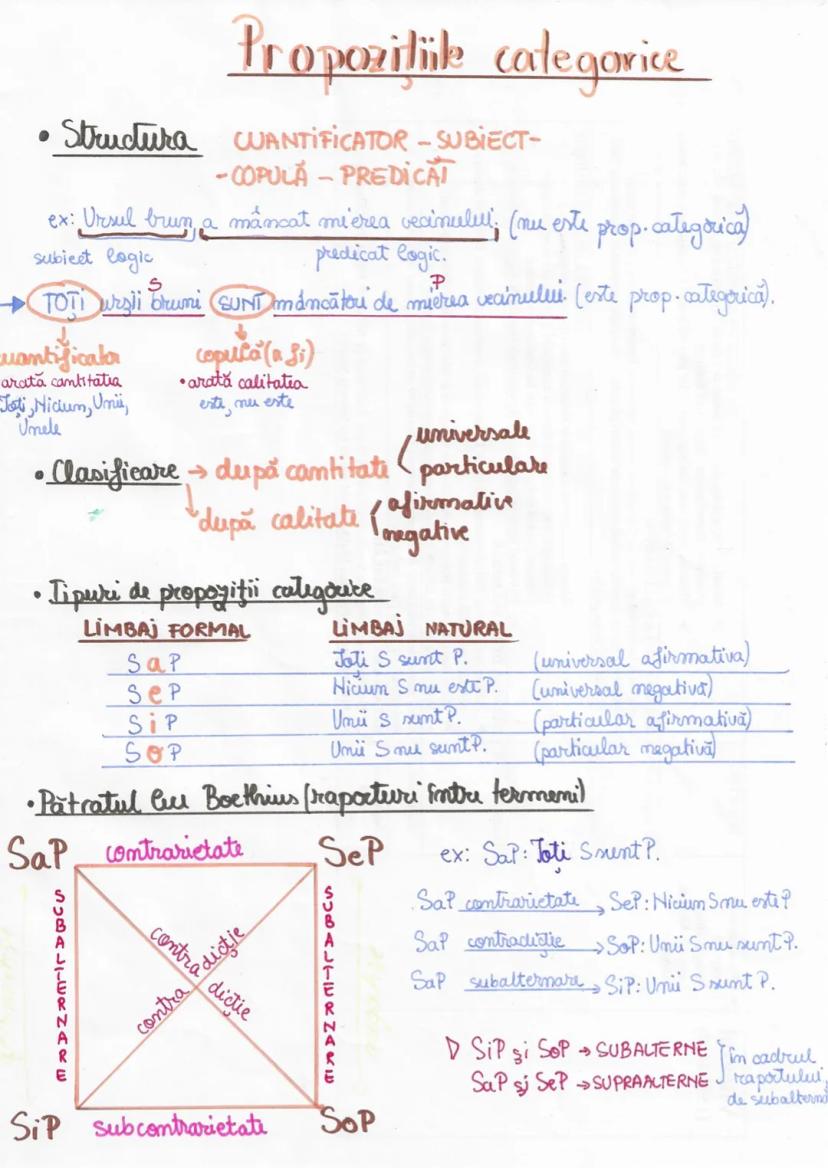 Propozițiile categorice
• Structura CUANTIFICATOR – SUBIECT –
– COPULĂ – PREDICAT
ex: Ursul brun a mâncat mierea vecinului. (nu este prop. categorică)
subiect logic predicat logic.
S P
→ TOȚI urșii bruni SUNT mâncători de mierea vecinului. (este prop. categorică).
uantificator copulă (a fi)
arată cantitatea • arată calitatea
Toți, Niciun, Unii, este, nu este
Unele
• Clasificare → după cantitate universale
particulare
după calitate afirmative
negative
• Tipuri de propoziții categorice
LIMBAJ FORMAL LIMBAJ NATURAL
S a P Toți S sunt P. (universal afirmativa)
S e P Niciun S nu este P. (universal negativă)
S i P Unii S sunt P. (particular afirmativă)
S o P Unii S nu sunt P. (particular negativă)
• Pătratul lui Boethius (raporturi între termeni)
SaP contrarietate SeP
SUBALTERNARE
contradicție
contradicție
SUBALTERNARE
SiP subcontrarietate SoP
ex: SaP: Toți S sunt P.
SaP contrarietate → SeP: Niciun S nu este P
SaP contradicție → SoP: Unii S nu sunt P.
SaP subalternare → SiP: Unii S sunt P.
▷ SiP și SoP → SUBALTERNE
SaP și SeP → SUPRAALTERNE
în cadrul
raportului
de subaltern